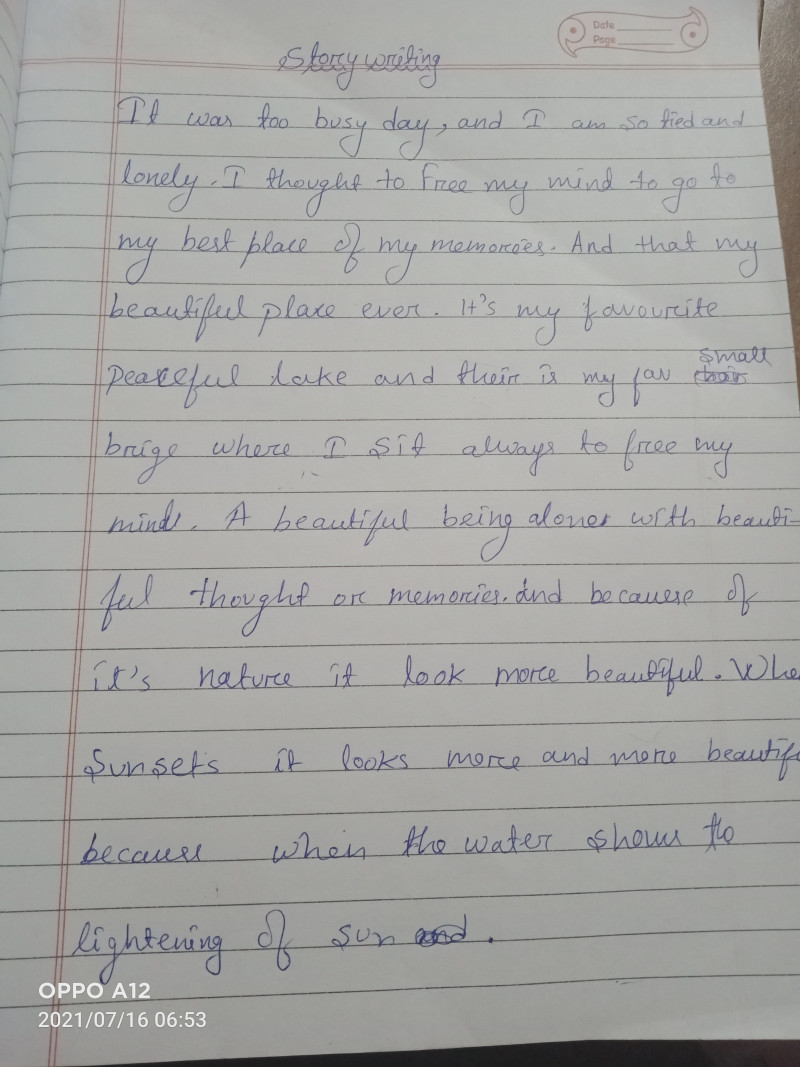 Date
Page
Story writing
It was too busy day, and I am so tied and
lonely. I thought to free my mind to go to
my best place of my memories. And that my
beautiful place ever. It's my favourite
small
peaceful lake and their is my fav
brige where I sit always to free my
mind. A beautiful being alones with beauti-
ful thought or memories. and because of
it's nature it look more beautiful. Whe
Sunsets it looks more and more beautif
because when the water shows to
lightening of sun and.
OPPO A12
2021/07/16 06:53